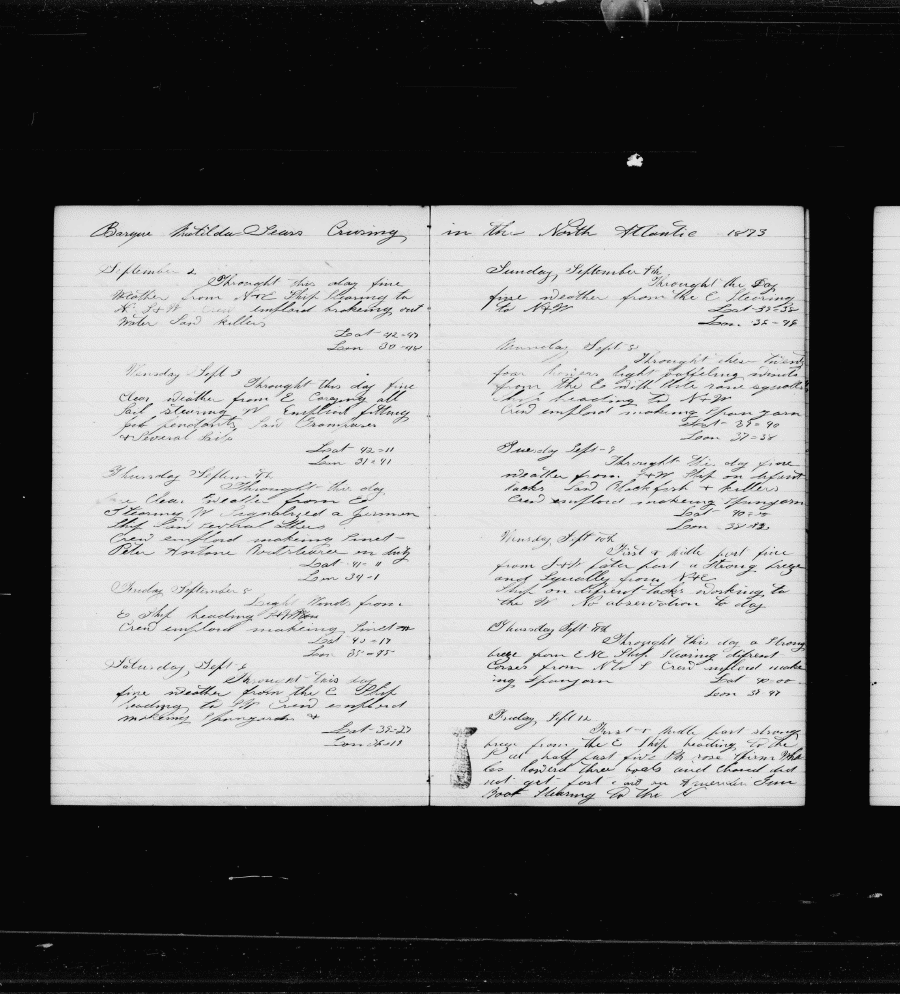 Barque Matilda Sears Crusing
September 2
Throught this day fine
Weather from N&E Ship Stearing to
emploid brokeing out
Water Sand killers
Lat 42=47
Lon 30=48
Wensday Sept 3
Throught this day fine
Clear Weather from E Carying all
Sail Stearing W Emploid fitting
jib pendants
& Several Sail
Lat 42=11
Lon 31=41
Thursday Septem 4th
Throught this day
fine Clear Weather from E
Stearing W Signalized a German
Ship Saw several others
Crew emploid makeing Sinet
Peter Antone Boatstearer on duty
Lat 41=11
Lon 34=1
Friday September 5
Light Winds from
E Ship heading
Crew emploid makeing Sinet
Lat 40=17
Lon 35=45
Saturday, Sept 6
Throught this day
fine weather from the E Ship
heading to SW Crew emploid
makeing Spunyarn &
Lat 39=27
Lon 36=13
in the North Atlantic 1873
Sunday, September 7th
Throught the Day
fine weather from the E Stearing
to N&W Lat 39=38
Lon 36=48
Munday Sept 8
Throught thes twenty
four howers light baffeling winds
from the E with little rane squalls
Ship heading to N&W
Crew emploid makeing Spunyarn
Lat 39=40
Lon 37=38
Tuesday Sept 9
Throught this day fine
weather from S&W Ship on difrent
tacks Sand Blackfish & killers
Crew emploid makeing Spunyarn
Lat 40
Lon 38=42
Wensday Sept 10th
First & midle part fine
from S&W later part a Strong breze
and Squally from N&E
Ship on difrent tacks working to
the W No observation to day
Thursday Sept 11th
Throught this day a Strong
breze from ENE Ship Stearing difrent
Corses from N to S Crew emploid make
ing Spunyarn Lat 40=00
Lon 39 47
Friday, Sept 12
First & midle part strong
breze from the E Ship heading to the
S at half past five PM rose Wha
les lowerd three boats and chased did
not get fast
Boat Stearing to the N